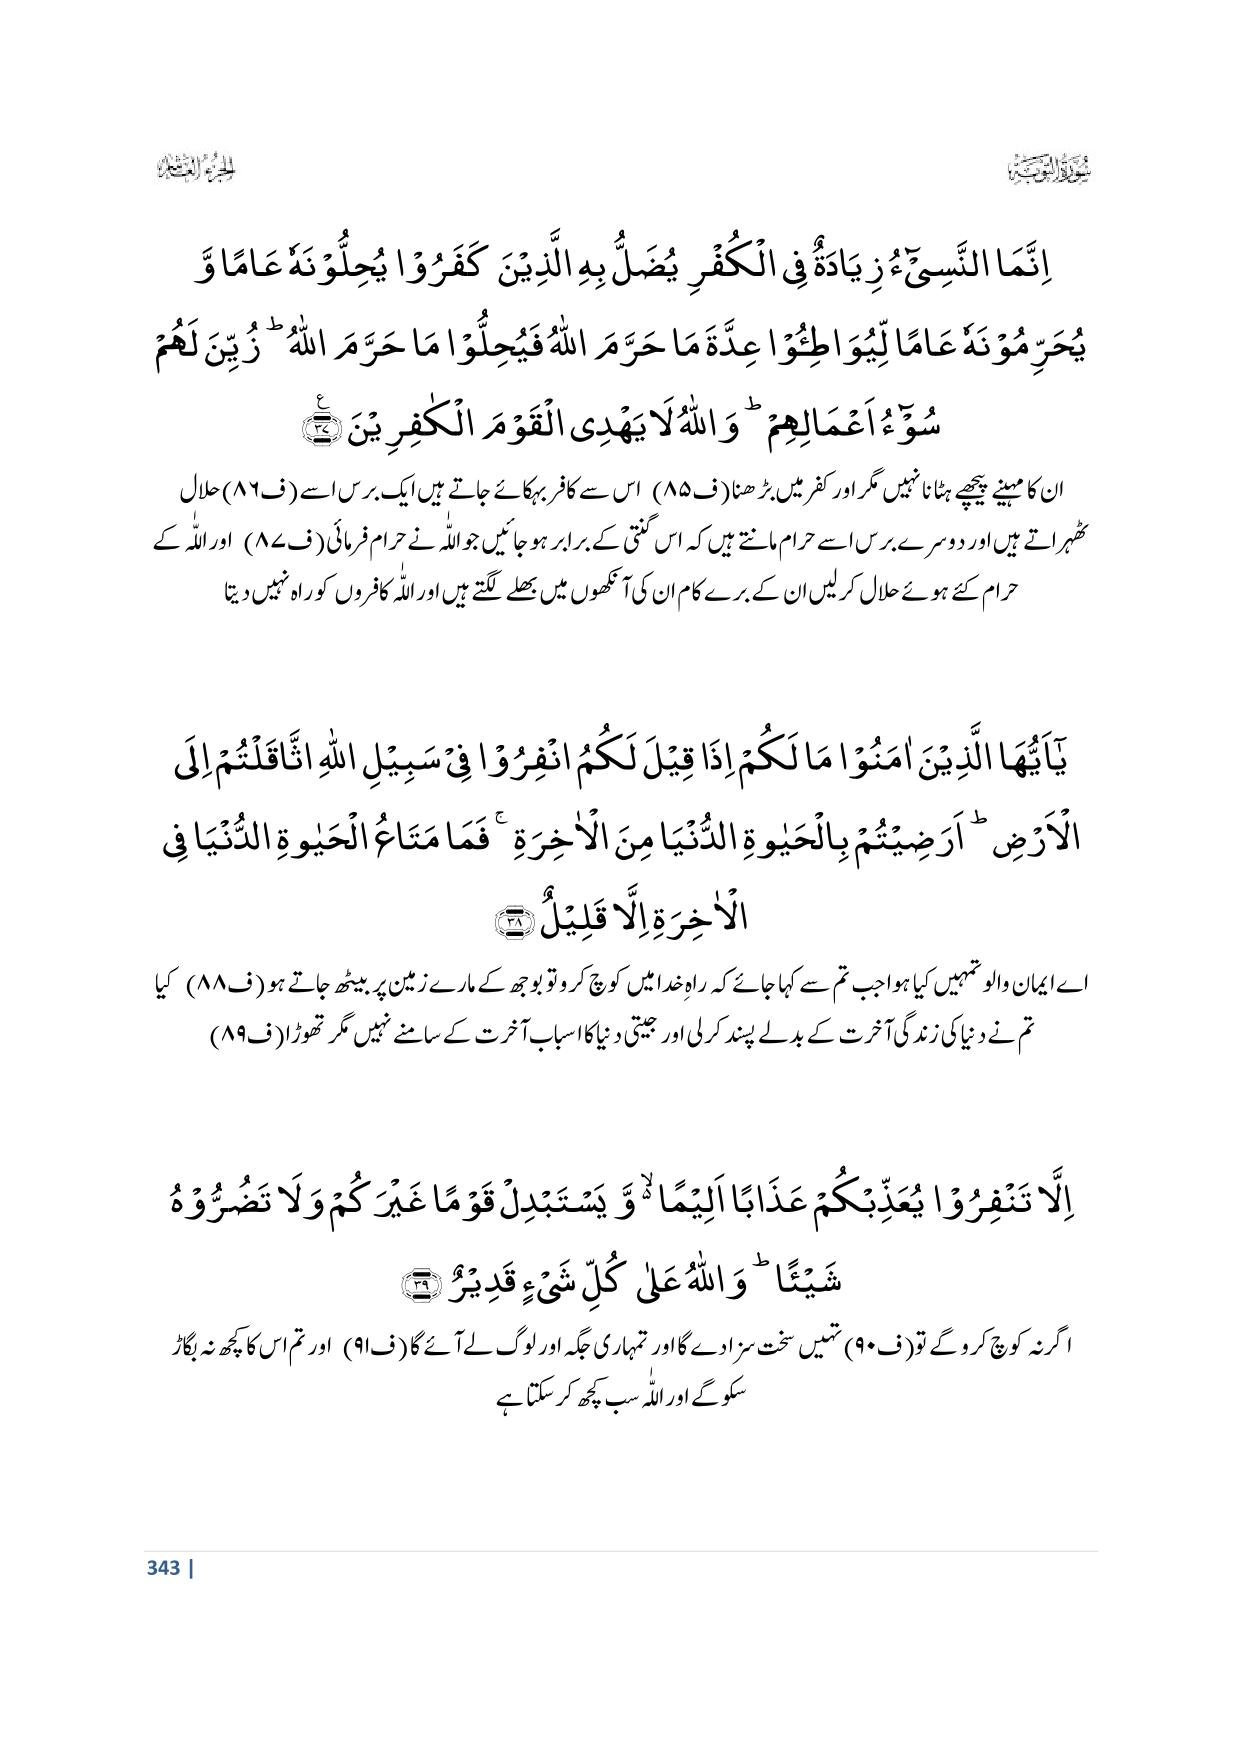 سُوْرَةُ التَّوْبَةِ
الجزء العاشر
اِنَّمَا النَّسِیْٓءُ زِیَادَةٌ فِی الْكُفْرِ یُضَلُّ بِهِ الَّذِیْنَ كَفَرُوْا یُحِلُّوْنَهٗ عَامًا وَّ
یُحَرِّمُوْنَهٗ عَامًا لِّیُوَاطِـُٔوْا عِدَّةَ مَا حَرَّمَ اللّٰهُ فَیُحِلُّوْا مَا حَرَّمَ اللّٰهُ ؕ زُیِّنَ لَهُمْ
سُوْٓءُ اَعْمَالِهِمْ ؕ وَ اللّٰهُ لَا یَهْدِی الْقَوْمَ الْكٰفِرِیْنَ ۠ ﴿۳۷﴾
ان کا مہینے پیچھے ہٹانا نہیں مگر اور کفر میں بڑھنا(ف۸۵) اس سے کافر بہکائے جاتے ہیں ایک برس اسے (ف۸۶)حلال
ٹھہراتے ہیں اور دوسرے برس اسے حرام مانتے ہیں کہ اس گنتی کے برابر ہوجائیں جو اللّٰہ نے حرام فرمائی(ف۸۷) اور اللّٰہ کے
حرام کئے ہوئے حلال کرلیں ان کے برے کام ان کی آنکھوں میں بھلے لگتے ہیں اور اللّٰہ کافروں کو راہ نہیں دیتا
یٰۤاَیُّهَا الَّذِیْنَ اٰمَنُوْا مَا لَكُمْ اِذَا قِیْلَ لَكُمُ انْفِرُوْا فِیْ سَبِیْلِ اللّٰهِ اثَّاقَلْتُمْ اِلَی
الْاَرْضِ ؕ اَرَضِیْتُمْ بِالْحَیٰوةِ الدُّنْیَا مِنَ الْاٰخِرَةِ ۚ فَمَا مَتَاعُ الْحَیٰوةِ الدُّنْیَا فِی
الْاٰخِرَةِ اِلَّا قَلِیْلٌ ﴿۳۸﴾
اے ایمان والو تمہیں کیا ہوا جب تم سے کہا جائے کہ راہِ خدا میں کوچ کرو تو بوجھ کے مارے زمین پر بیٹھ جاتے ہو (ف۸۸) کیا
تم نے دنیا کی زندگی آخرت کے بدلے پسند کرلی اور جیتی دنیا کا اسباب آخرت کے سامنے نہیں مگر تھوڑا(ف۸۹)
اِلَّا تَنْفِرُوْا یُعَذِّبْكُمْ عَذَابًا اَلِیْمًا ۙ۬ وَّ یَسْتَبْدِلْ قَوْمًا غَیْرَكُمْ وَ لَا تَضُرُّوْهُ
شَیْــٴًـا ؕ وَ اللّٰهُ عَلٰی كُلِّ شَیْءٍ قَدِیْرٌ ﴿۳۹﴾
اگر نہ کوچ کرو گے تو(ف۹۰) تمہیں سخت سزا دے گا اور تمہاری جگہ اور لوگ لے آئے گا(ف۹۱) اور تم اس کا کچھ نہ بگاڑ
سکو گے اور اللّٰہ سب کچھ کرسکتا ہے
343 |